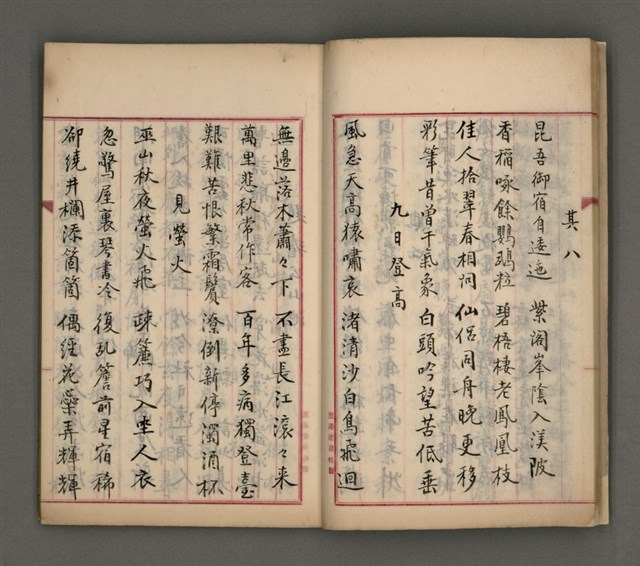 其八
昆吾御宿自逶迤　紫閣峯陰入渼陂
香稻啄餘鸚鵡粒　碧梧棲老鳳凰枝
佳人拾翠春相問　仙侶同舟晚更移
彩筆昔曾干氣象　白頭吟望苦低垂
九日登高
風急天高猿嘯哀　渚清沙白鳥飛迴
無邊落木蕭々下　不盡長江滾々来
萬里悲秋常作客　百年多病獨登臺
艱難苦恨繁霜鬢　潦倒新停濁酒杯
見螢火
巫山秋夜螢火飛　疎簾巧入坐人衣
忽驚屋裏琴書冷　復乱簷前星宿稀
卻繞井欄添箇箇　偶經花蘂弄輝輝